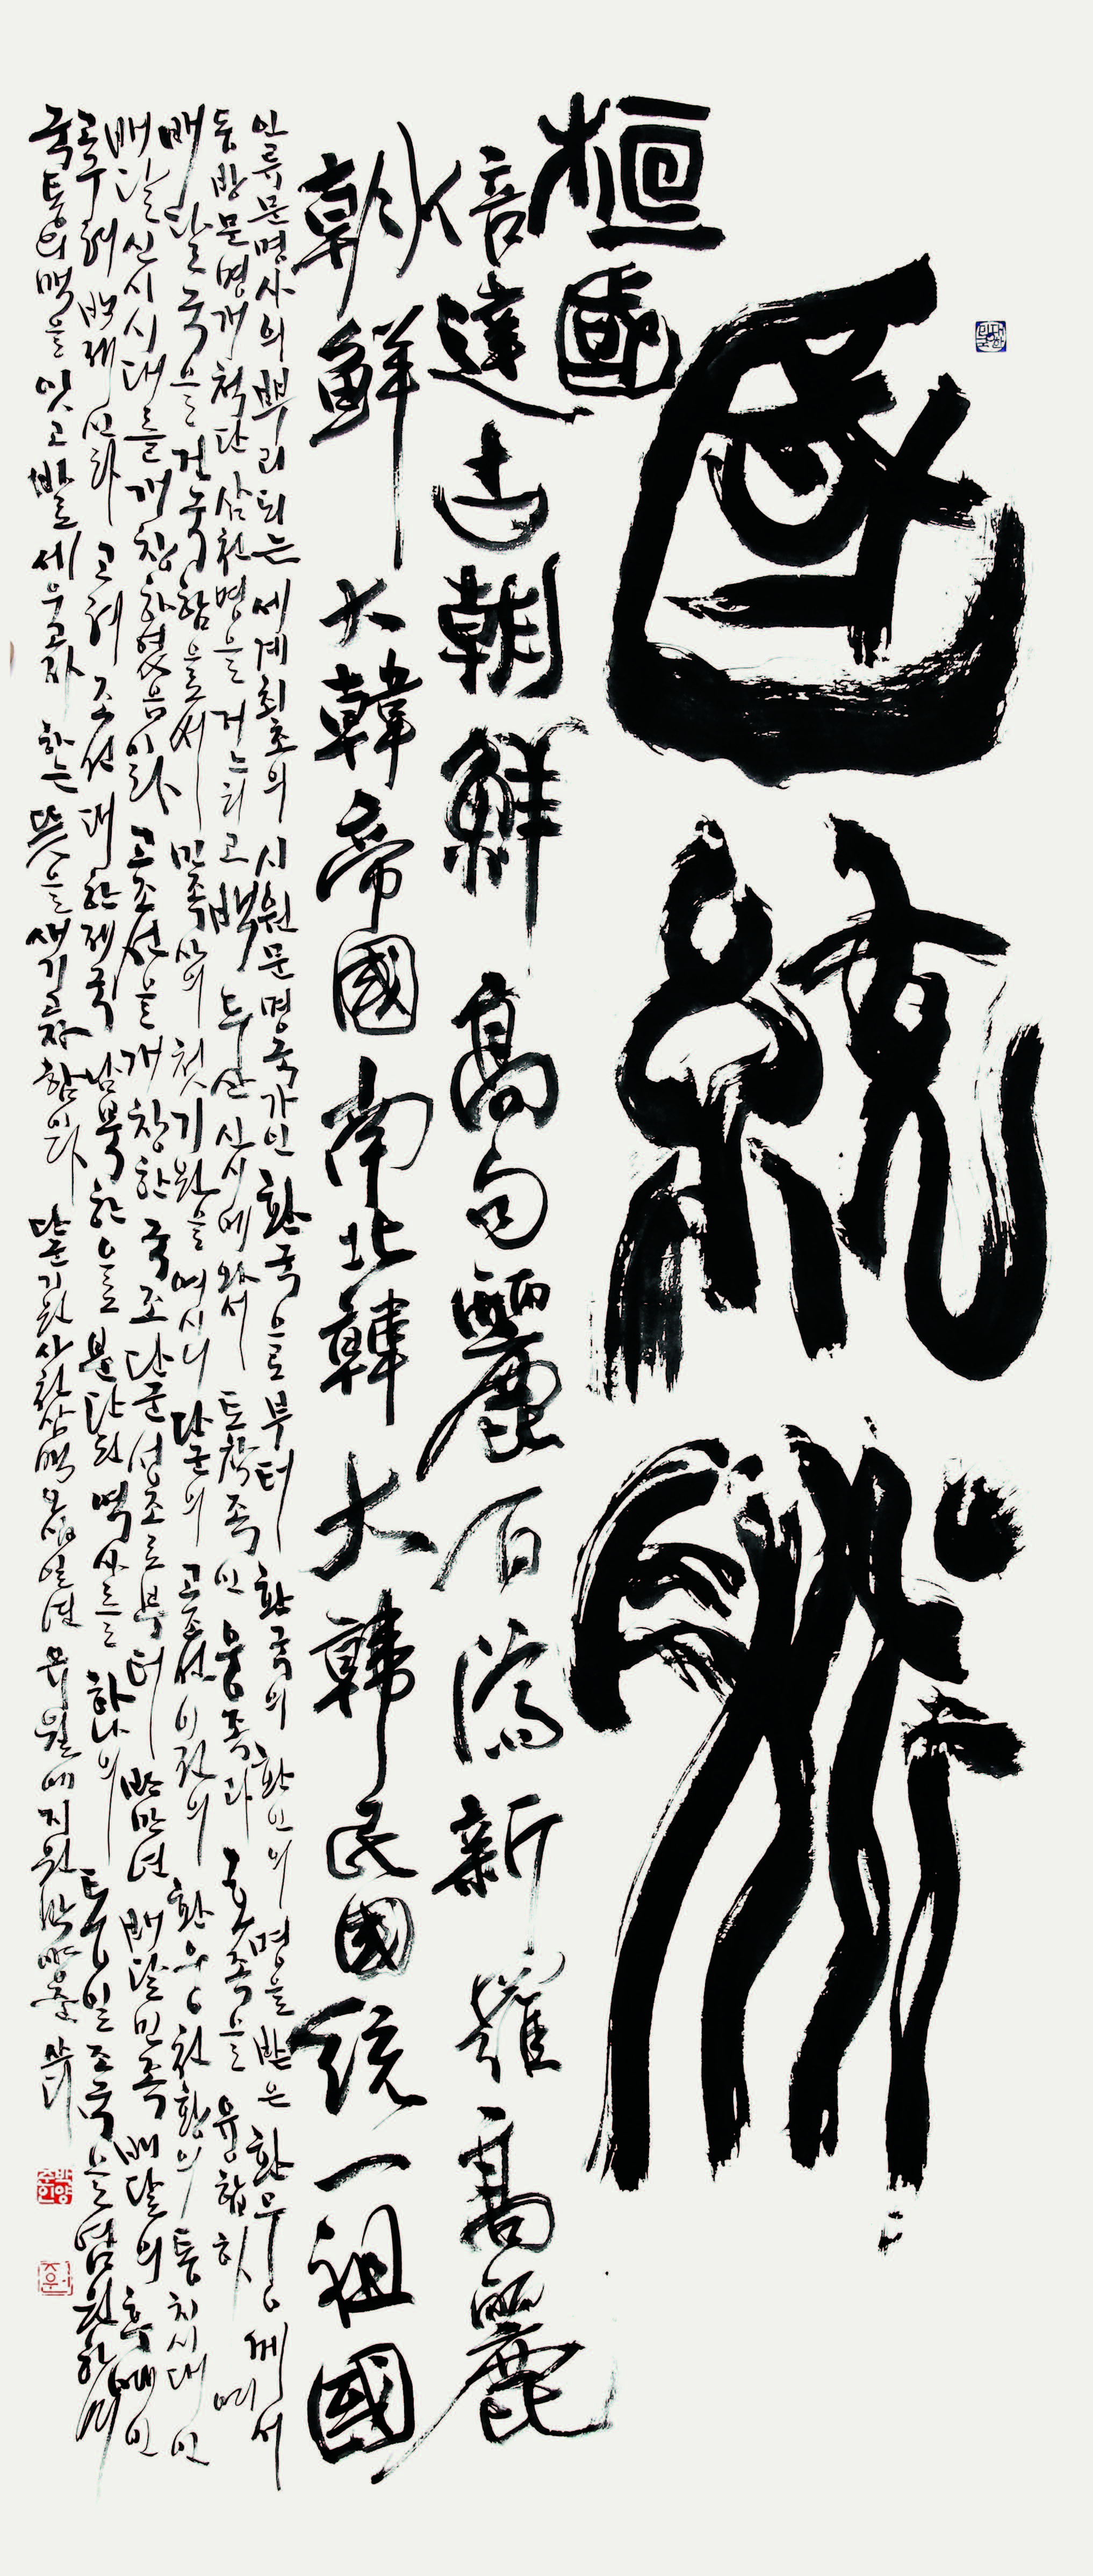 國統脈
桓國
倍達古朝鮮高句麗百濟新羅高麗
朝鮮大韓帝國南北韓大韓民國統一祖國
인류문명사의 뿌리되는 세계최초의 시원문명국가인 환국으로부터 환국의 환인의 명을 받은 환웅께서
동방문명개척단 삼천명을 거느리고 백두산 신시에 와서 토착족인 웅족과 호족을 융합하며
배달국을 건국함으로써 민족사의 첫기원을 여시니 단군의 고조선 이전의 환웅천황의 통치시대인
배달 신시시대를 개창하였음이라 고조선을 개창한 국조 단군성조로부터 반만년 배달민족 배달의 후예인
고구려 백제 신라 고려 조선 대한제국 남북한으로 분단된 역사를 하나의 통일조국을 염원하며
국통의 맥을 잇고 바로 세우고자 하는 뜻을 새기고자 함이다 단군기원사천삼백 년 유월에 지원 박양준